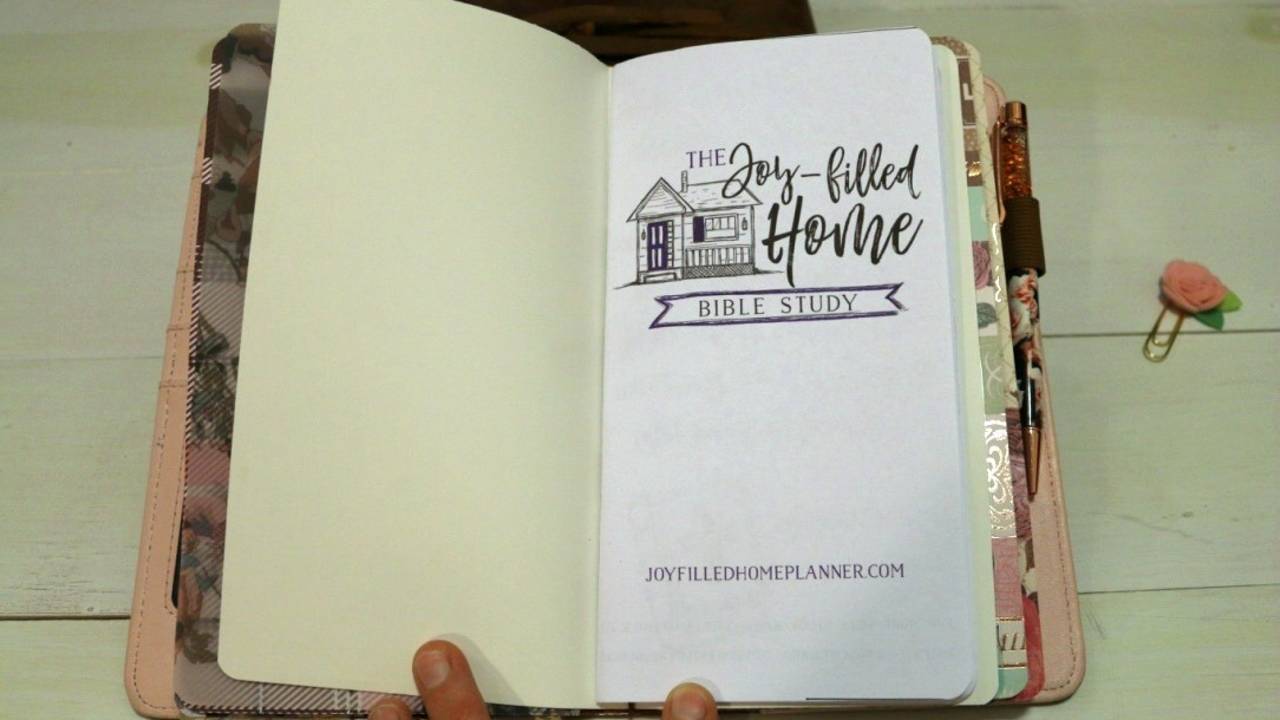 THE Joy-filled
Home
BIBLE STUDY
JOYFILLEDHOMEPLANNER.COM